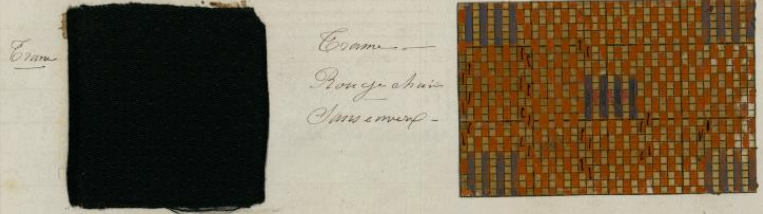 Trame
Trame —
Rouge chain
Sans envers -